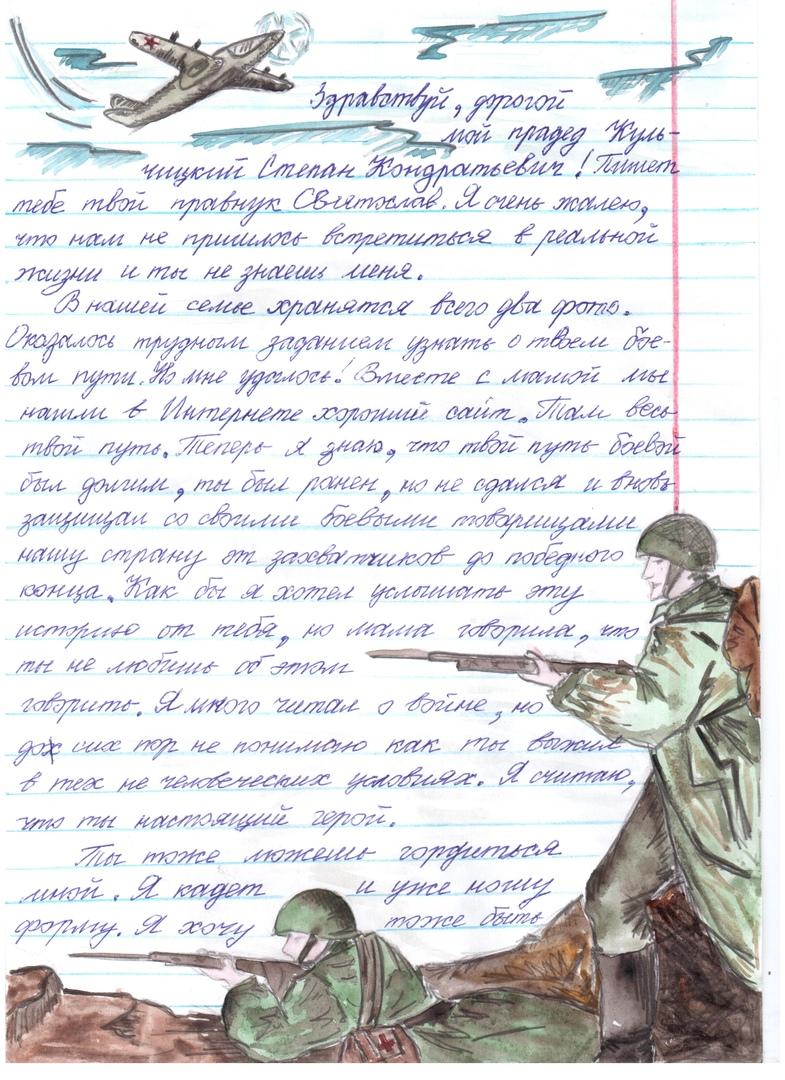 Здравствуй, дорогой
мой прадед Куль-
чицкий Степан Кондратьевич! Пишет
тебе твой правнук Святослав. Я очень жалею,
что нам не пришлось встретиться в реальной
жизни и ты не знаешь меня.
В нашей семье хранятся всего два фото.
Оказалось трудным заданием узнать о твоем бое-
вом пути. Но мне удалось! Вместе с мамой мы
нашли в Интернете хороший сайт. Там весь
твой путь. Теперь я знаю, что твой путь боевой
был долгим, ты был ранен, но не сдался и вновь
защищал со своими боевыми товарищами
нашу страну от захватчиков до победного
конца. Как бы я хотел услышать эту
историю от тебя, но мама говорила, что
ты не любишь об этом
говорить. Я много читал о войне, но
до сих пор не понимаю как ты выжил
в тех не человеческих условиях. Я считаю,
что ты настоящий герой.
Ты тоже можешь гордиться
мной. Я кадет и уже ношу
форму. Я хочу тоже быть